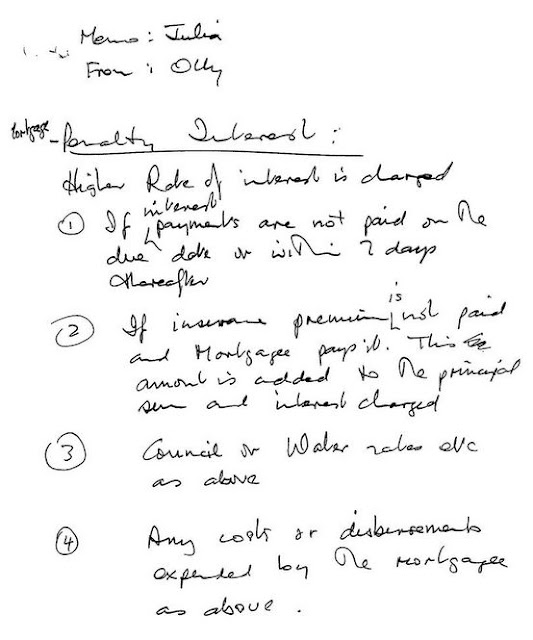 Memo: Julia
From: Olly
Mortgage - Penalty Interest:
Higher Rate of interest is charged
① If interest payments are not paid on the
due date or within 7 days
thereafter
② If insurance premium is not paid
and Mortgagee pays it. This
amount is added to the principal
sum and interest charged
③ Council or Water rates etc
as above
④ Any costs or disbursements
expended by the mortgagee
as above.